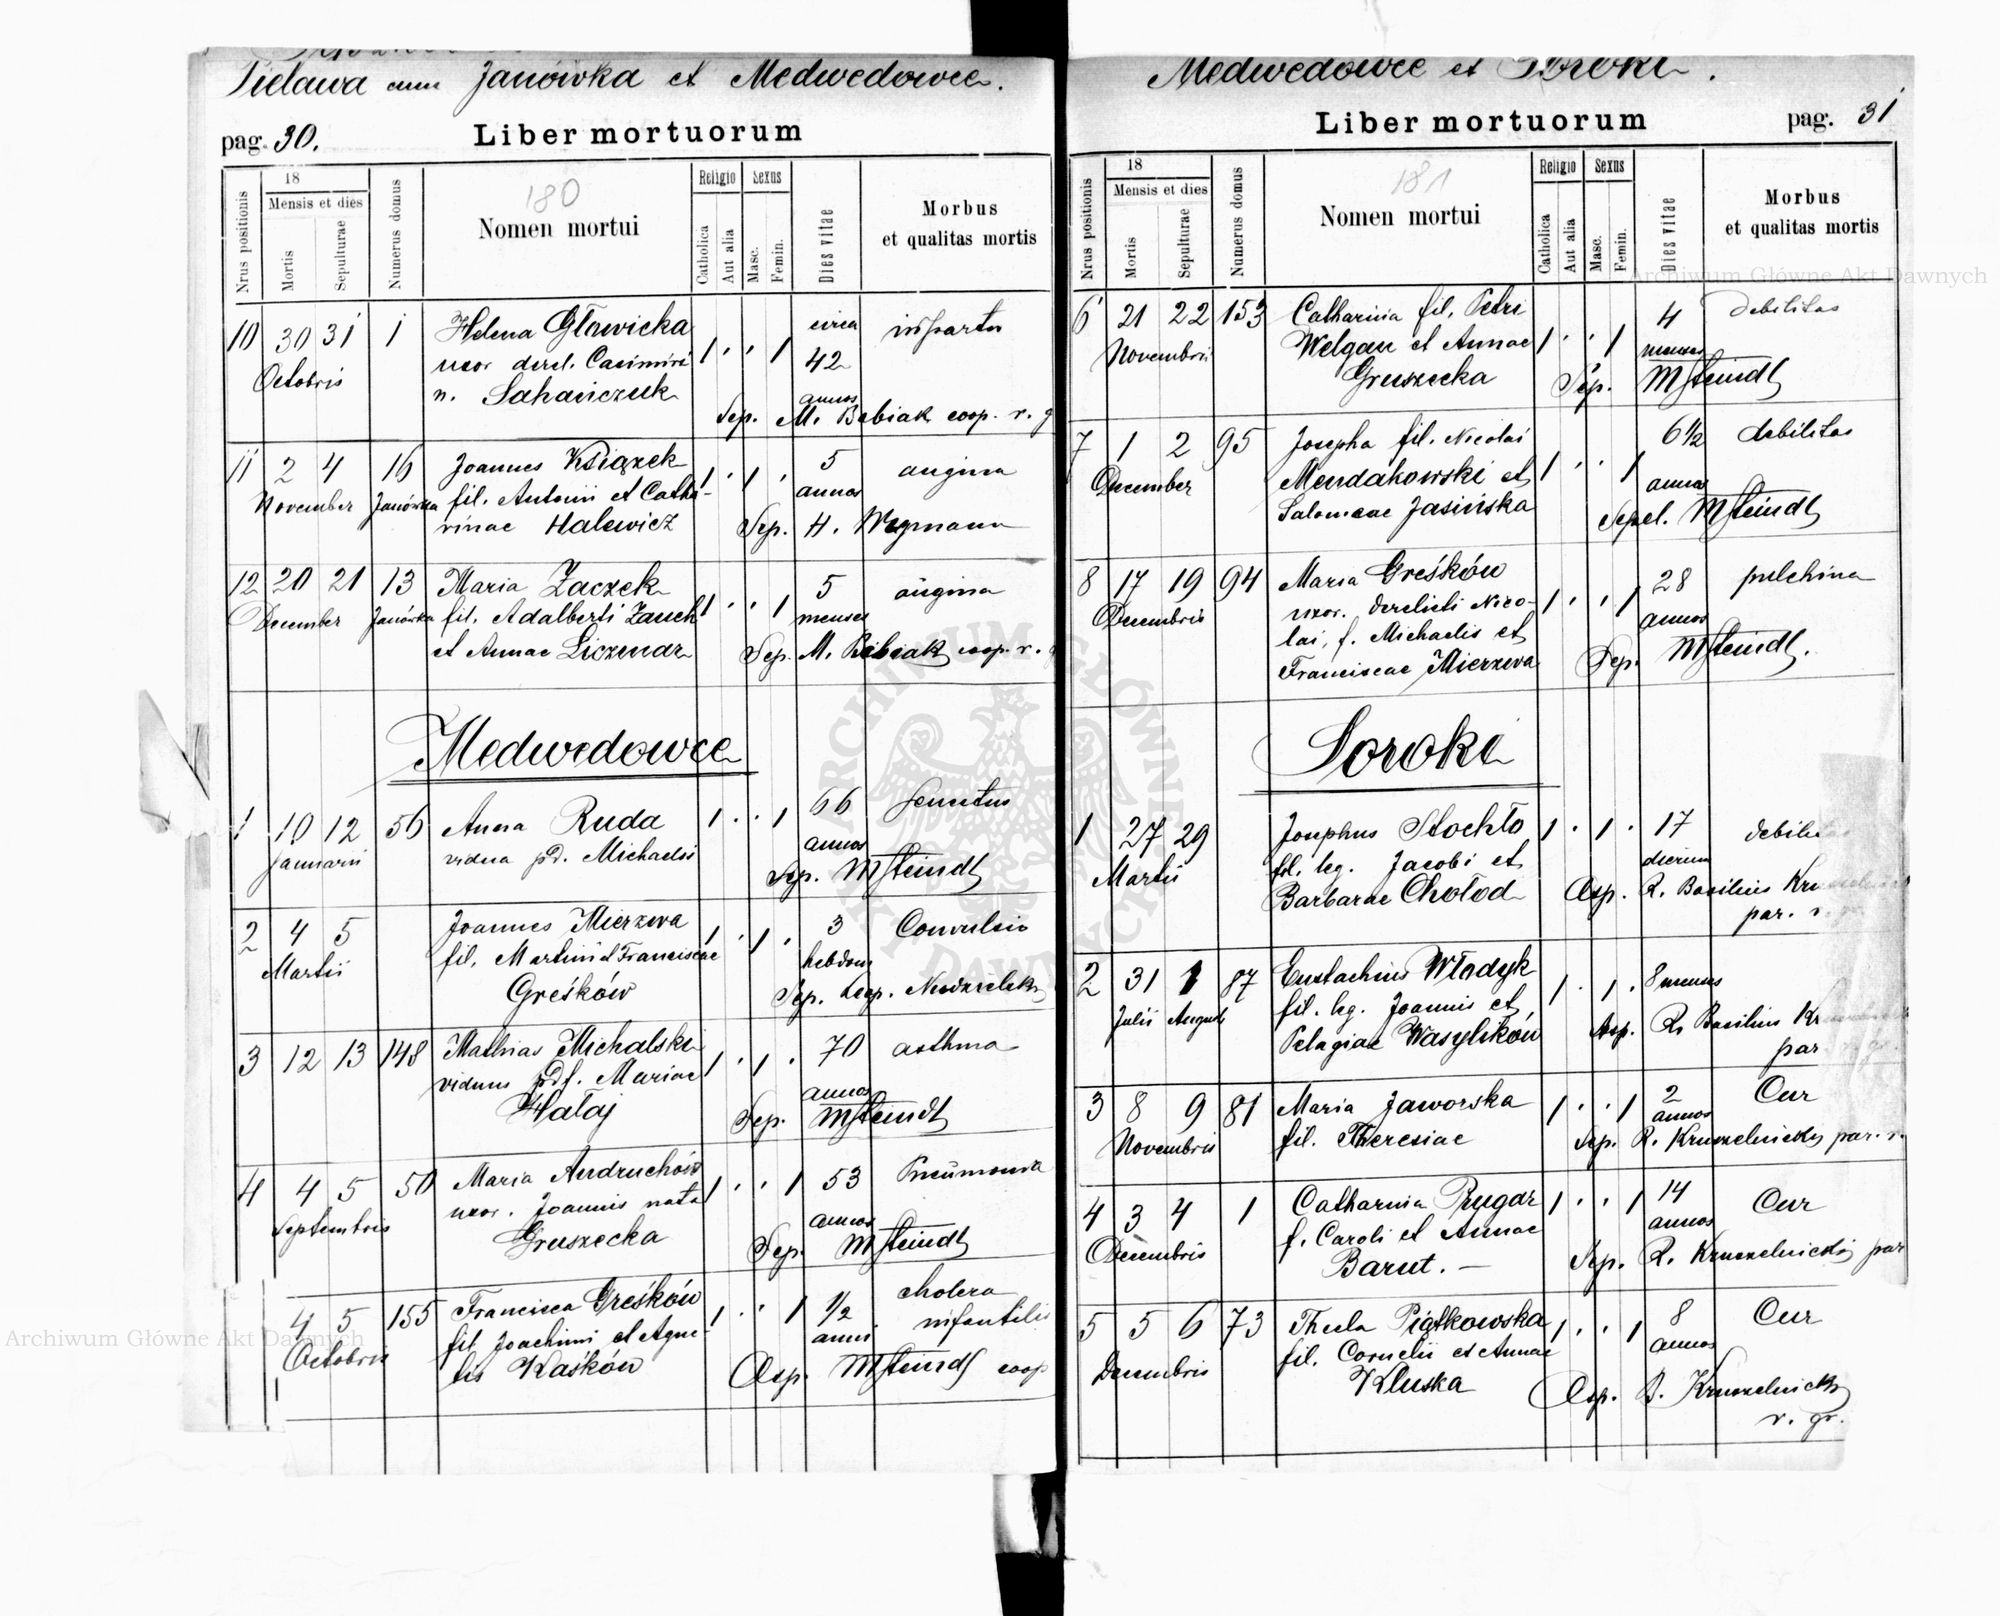 Pielawa cum Janówka et Medwedowce.
pag. 30. Liber mortuorum
Nrus positionis
18
Mensis et dies
Mortis
Sepulturae
Numerus domus
180
Nomen mortui
Religio
Catholica
Aut alia
Sexus
Masc.
Femin.
Dies vitae
Morbus
et qualitas mortis
10 30 31 1 Helena Głowicka 1 . . 1 circa in partu
Octobris uxor derel. Casimiri 42
n. Sahańczuk annos
Sep. M. Babiak coop. r. g
11 2 4 16 Joannes Książek 1 . 1 . 5 angina
November Janówka fil. Antonii et Catha- annos
rinae Halewicz Sep. H. Wegmann
12 20 21 13 Maria Zaczek 1 . . 1 5 angina
December Janówka fil. Adalberti Zauch menses
et Annae Liczmar Sep. M. Babiak coop. r. g
Medwedowce
1 10 12 56 Anna Ruda 1 . . 1 66 senectus
Januarii vidua pd. Michaelis annos
Sep. MSteindl
2 4 5 Joannes Mierzwa 1 . 1 . 3 Convulsio
Martii fil. Martini et Franciscae hebdom
Greśków Sep. Leop. Niedzielski
3 12 13 148 Mathias Michalski 1 . 1 . 70 asthma
viduus pdf. Mariae annos
Hałaj Sep. MSteindl
4 4 5 50 Maria Andruchów 1 . . 1 53 Pneumonia
Septembris uxor. Joannis nata annos
Gruszecka Sep. MSteindl
4 5 155 Francisca Greśków 1 . . 1 1/2 cholera
Octobris fil Joachimi et Agne- anni infantilis
tis Kaśków Asp. MSteindl coop
Medwedowce et Soroki.
Liber mortuorum pag. 31
Nrus positionis
18
Mensis et dies
Mortis
Sepulturae
Numerus domus
181
Nomen mortui
Religio
Catholica
Aut alia
Sexus
Masc.
Femin.
Dies vitae
Morbus
et qualitas mortis
6 21 22 153 Catharina fil. Petri 1 . . 1 4 debilitas
Novembris Welgan et Annae menses
Gruszecka Sep. MSteindl
7 1 2 95 Josepha fil. Nicolai 1 . . 1 6 1/2 debilitas
December Mendakowski et annos
Salomeae Jasińska Sepel. MSteindl
8 17 19 94 Maria Greśków 1 . . 1 28
Decembris uxor. derelicti Nico- annos
lai, f. Michaelis et
Franciscae Mierzwa Sep. MSteindl.
Soroki
1 27 29 Josephus Stochło 1 . 1 . 17 debilitas
Martii fil. leg. Jacobi et dierum
Barbarae Chołod Asp. R. Basilius Kru
par. r.
2 31 1 87 Eustachius Władyk 1 . 1 . 8 menses
Julii Augusti fil. leg. Joannis et
Pelagiae Wasylików Asp. R. Basilius Kr
par
3 8 9 81 Maria Jaworska 1 . . 1 2 Cur
Novembris fil. Theresiae annos
Sep. R. Kruszelnicki par. r.
4 3 4 1 Catharina Prugar 1 . . 1 14 Cur
Decembris f. Caroli et Annae annos
Barut. — Sep. R. Kruszelnicki par
5 5 6 73 Thecla Piątkowska 1 . . 1 8 Cur
Decembris fil. Cornelii et Annae annos
Kluska Asp. B. Kruszelnicki
r. gr.
Archiwum Główne Akt Dawnych
Archiwum Główne Akt Dawnych
ARCHIWUM GŁÓWNE AKT DAWNYCH